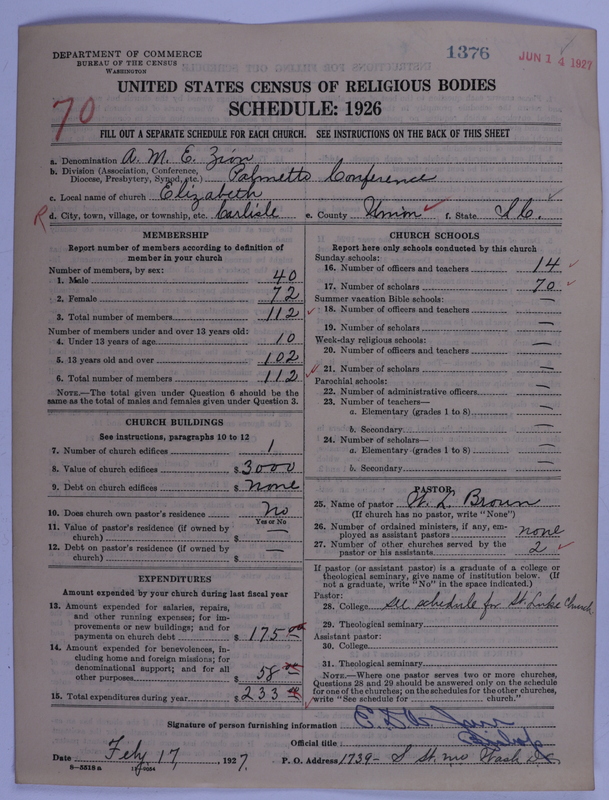 DEPARTMENT OF COMMERCE
BUREAU OF THE CENSUS
WASHINGTON
1376
JUN 14 1927
UNITED STATES CENSUS OF RELIGIOUS BODIES
SCHEDULE: 1926
70
FILL OUT A SEPARATE SCHEDULE FOR EACH CHURCH. SEE INSTRUCTIONS ON THE BACK OF THIS SHEET
a. Denomination A. M. E. Zion
b. Division (Association, Conference, Diocese, Presbytery, Synod, etc.) Palmetto Conference
c. Local name of church Elizabeth
R d. City, town, village, or township, etc. Carlisle e. County Union f. State S.C.
MEMBERSHIP
Report number of members according to definition of
member in your church
Number of members, by sex:
1. Male 40
2. Female 72
3. Total number of members 112
Number of members under and over 13 years old:
4. Under 13 years of age 10
5. 13 years old and over 102
6. Total number of members 112
NOTE.—The total given under Question 6 should be
same as the total of males and females given under Question 3.
CHURCH BUILDINGS
See instructions, paragraphs 10 to 12
7. Number of church edifices 1
8. Value of church edifices $3000
9. Debt on church edifices $ none
10. Does church own pastor's residence No
Yes or No
11. Value of pastor's residence (if owned by
church) $ —
12. Debt on pastor's residence (if owned by
church) $ —
EXPENDITURES
Amount expended by your church during last fiscal year
13. Amount expended for salaries, repairs,
and other running expenses; for im-
provements or new buildings; and for
payments on church debt $ 175.00
14. Amount expended for benevolences, in-
cluding home and foreign missions; for
denominational support; and for all
other purposes $ 58
15. Total expenditures during year $ 233
CHURCH SCHOOLS
Report here only schools conducted by this church
Sunday schools:
16. Number of officers and teachers 14
17. Number of scholars 70
Summer vacation Bible schools:
18. Number of officers and teachers —
19. Number of scholars —
Week-day religious schools:
20. Number of officers and teachers —
21. Number of scholars —
Parochial schools:
22. Number of administrative officers —
23. Number of teachers—
a. Elementary (grades 1 to 8) —
b. Secondary —
24. Number of scholars—
a. Elementary (grades 1 to 8) —
b. Secondary —
PASTOR
25. Name of pastor W. L. Brown
(If church has no pastor, write "None")
26. Number of ordained ministers, if any, em-
ployed as assistant pastors none
27. Number of other churches served by the
pastor or his assistants 2
If pastor (or assistant pastor) is a graduate of a college or
theological seminary, give name of institution below. (If
not a graduate, write "No" in the space indicated.)
Pastor:
28. College see schedule for St. Luke Church
29. Theological seminary
Assistant pastor:
30. College
31. Theological seminary
NOTE.—Where one pastor serves two or more churches,
Questions 28 and 29 should be answered only on the schedule
for one of the churches; on the schedules for the other churches,
write "See schedule for church."
Signature of person furnishing information
Official title Bishop
Date Feby 17, 1927. P. O. Address 1739- S St. NW Wash D.C.
8—5518a